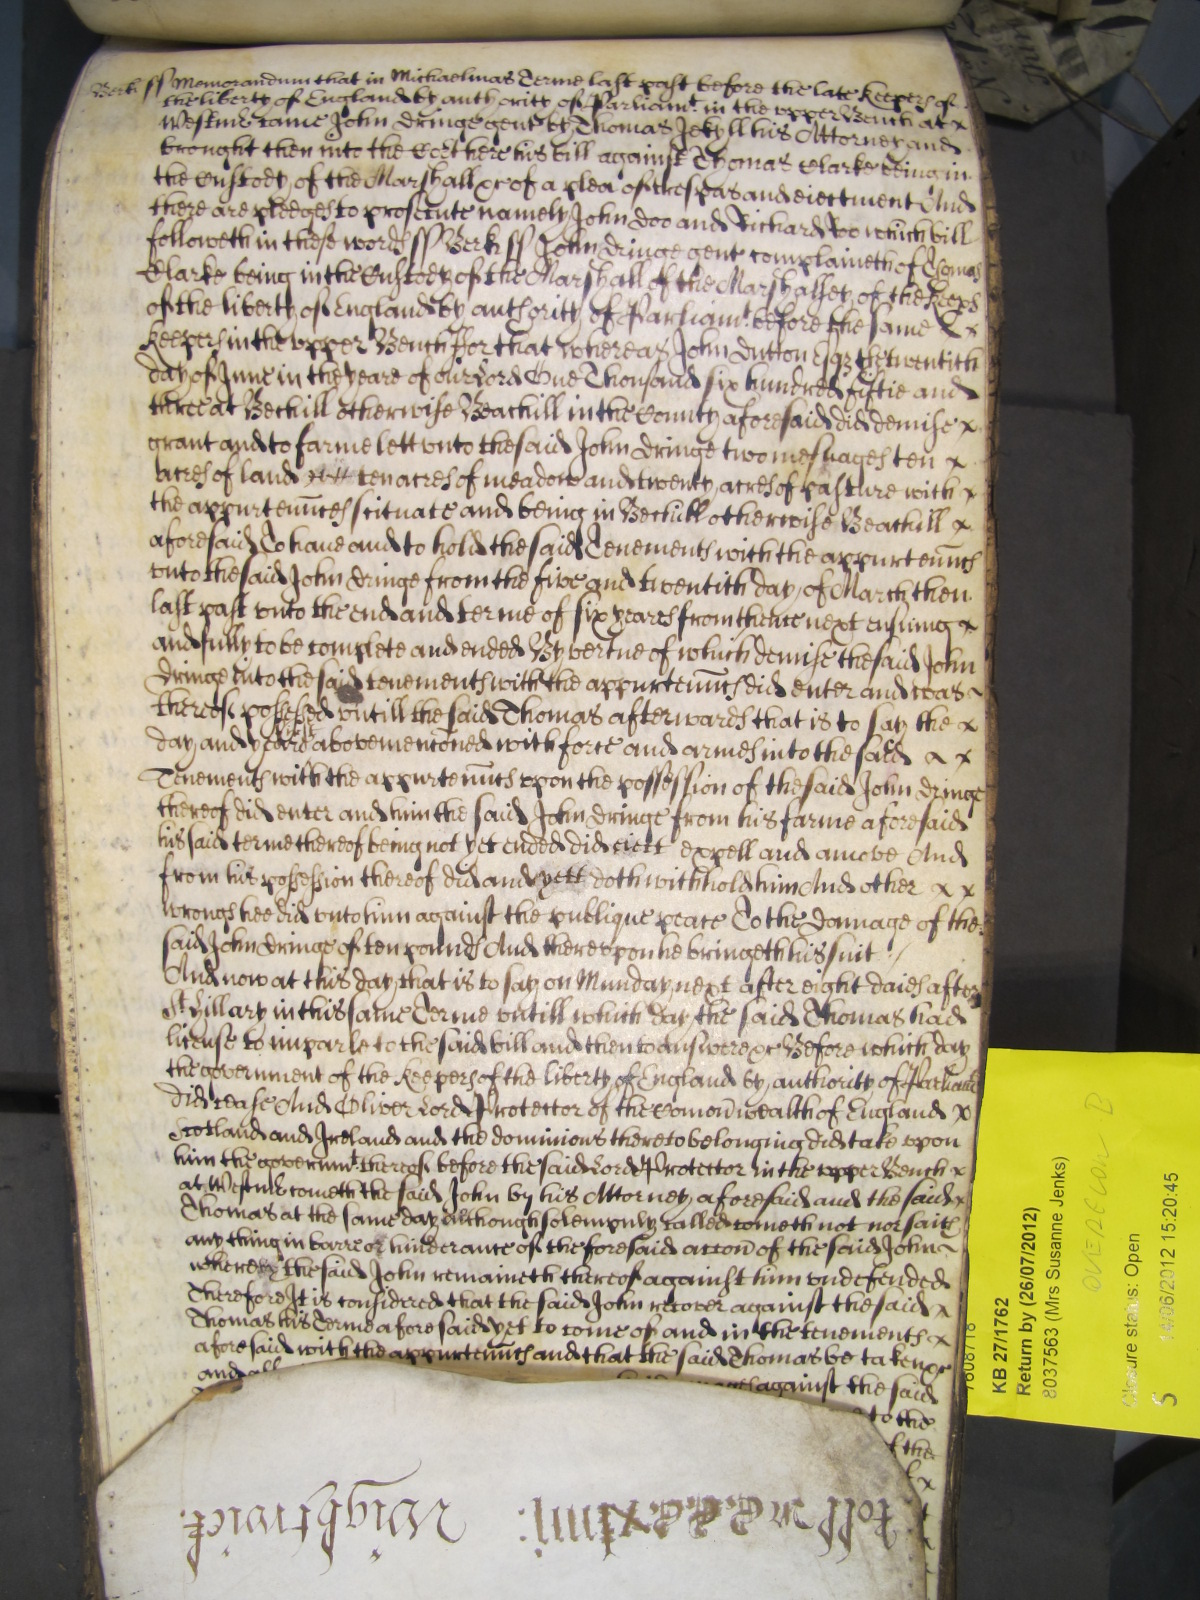 Berk ss Memorandum that in Michaelmas Terme last past before the late Keepers of
the liberty of England by authority of Parliamt in the upper Bench at x
Westmr came John Dringe gent by Thomas Jekyll his Attorney and
brought then into the Cort here his bill against Thomas Clarke being in
the Custody of the Marshall &c of a plea of trespas and eiectment And
there are pledges to prosecute namely John Doo and Richard Roo which bill
followeth in these words ss Berk ss John Dringe gent complaineth of Thomas
Clarke being in the Custody of the Marshall of the Marshalsey of the Keeps
of the liberty of England by authority of Parliamt before the same x x
Keepers in the upper Bench ffor that whereas John Dutton Esqr the twentith
day of June in the yeare of our Lord One Thousand six hundred fiftie and
three at Beckill otherwise Beackill in the County aforesaid did demise x
grant and to farme lett unto the said John Dringe two mesuages ten x
acres of land ten acres of meadow and twenty acres of pasture with x
the appurtenncs scituate and being in Beckill otherwise Beackill x
aforesaid To have and to hold the said Tenements with the appurtenncs
unto the said John Dringe from the five and twentith day of March then
last past unto the end and terme of six yeares from thence next ensuing x
and fully to be complete and ended By vertue of which demise the said John
Dringe into the said tenements with the appurtenncs did enter and was
thereof possessed untill the said Thomas afterwards that is to say the x
day and yeare abovementoned with force and armes into the said x x
Tenements with the appurtenncs upon the possession of the said John Dringe
thereof did enter and him the said John Dringe from his farme aforesaid
his said terme thereof being not yet ended did eiect expell and amove And
from his possession thereof did and yett doth withhold him And other x x
wrongs hee did unto him against the publique peace To the damage of the
said John Dringe of ten pounds And thereupon he bringeth his suit
And now at this day that is to say on Munday next after eight daies after
St Hillary in this same Terme untill which day the said Thomas had
license to imparle to the said bill and then to answere &c Before which day
the government of the Keepers of the liberty of England by authority of Parliamt
did cease And Oliver Lord Protector of the Comonwealth of England x
Scotland and Ireland and the dominions thereto belonging did take upon
him the governmt thereof before the said Lord Protector in the upper Bench x
at Westmr cometh the said John by his Attorney aforesaid and the said x
Thomas at the same day although solempnly called cometh not nor saith
any thing in barre or hinderance of the foresaid accon of the said John
whereby the said John remaineth thereof against him undefended
Therefore It is considered that the said John recover against the said x
Thomas his Terme aforesaid yet to come of and in the tenements x
aforesaid with the appurtenncs and that the said Thomas be taken &c
and all
against the said
to the
f the
Wightwick
KB 27/1762
Return by (26/07/2012)
8037563 (Mrs Susanne Jenks)
Closure status: Open
14/06/2012 15:20:45
5